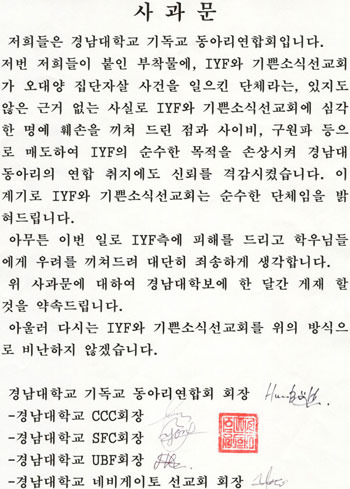 사 과 문
저희들은 경남대학교 기독교 동아리연합회입니다.
저번 저희들이 붙인 부착물에, IYF와 기쁜소식선교회
가 오대양 집단자살 사건을 일으킨 단체라는, 있지도
않은 근거 없는 사실로 IYF와 기쁜소식선교회에 심각
한 명예 훼손을 끼쳐 드린 점과 사이비, 구원파 등으
로 매도하여 IYF의 순수한 목적을 손상시켜 경남대
동아리의 연합 취지에도 신뢰를 격감시켰습니다. 이
계기로 IYF와 기쁜소식선교회는 순수한 단체임을 밝
혀드립니다.
아무튼 이번 일로 IYF측에 피해를 드리고 학우님들
에게 우려를 끼쳐드려 대단히 죄송하게 생각합니다.
위 사과문에 대하여 경남대학보에 한 달간 게재 할
것을 약속드립니다.
아울러 다시는 IYF와 기쁜소식선교회를 위의 방식으
로 비난하지 않겠습니다.
경남대학교 기독교 동아리연합회 회장
-경남대학교 CCC회장
-경남대학교 SFC회장
-경남대학교 UBF회장
-경남대학교 네비게이토 선교회 회장